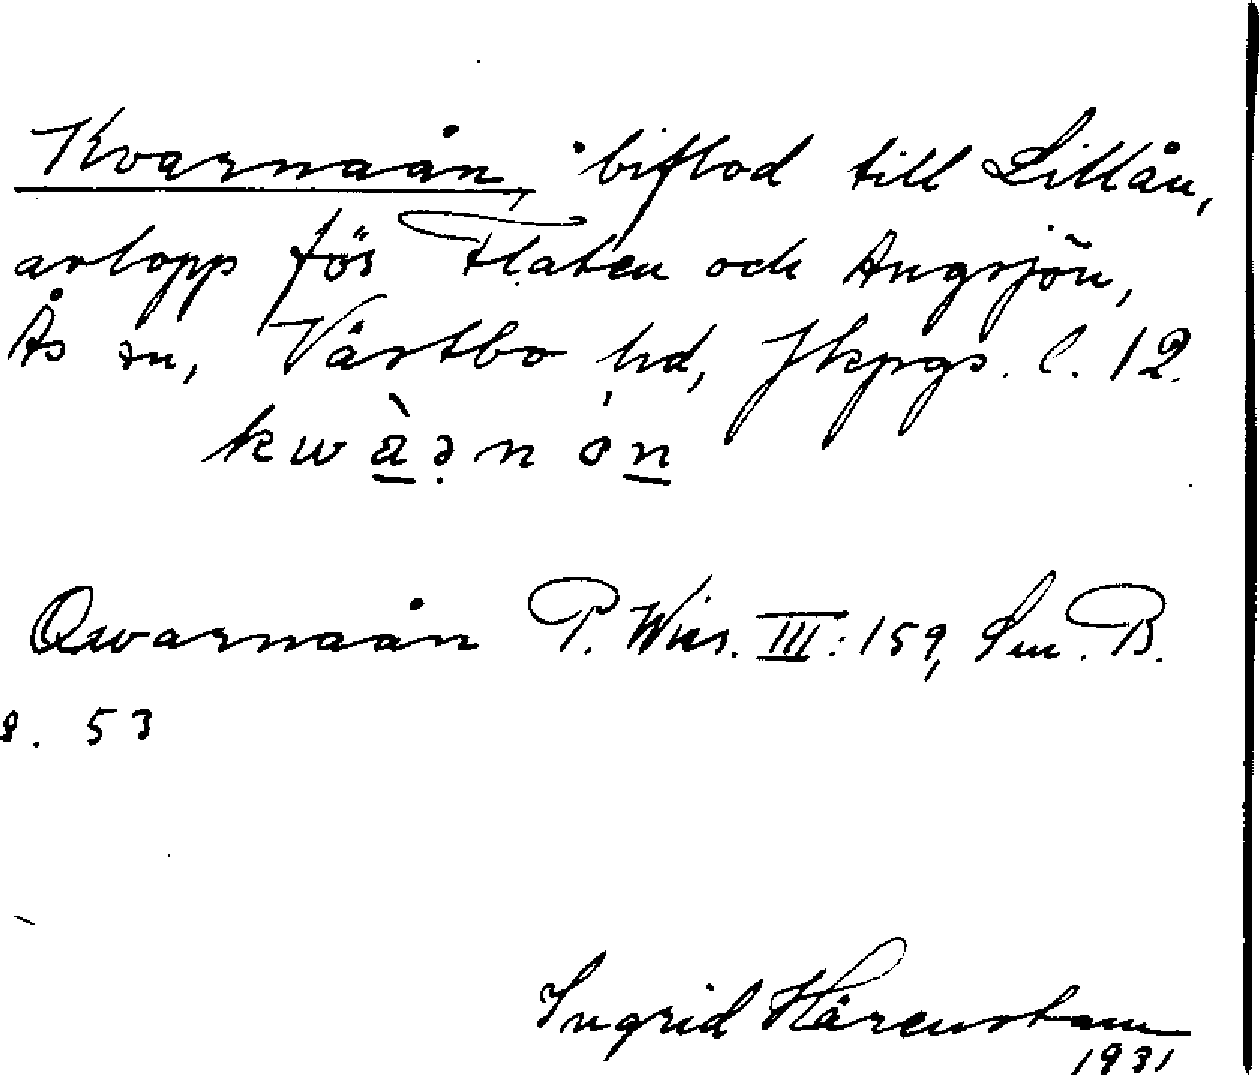 Kvarnaån, biflod till Lillån,
avlopp för Flaten och Angsjön,
Ås sn, Västbo hd, Jkpgs. l. 12.
kwàṇn ón
Qwarnaån P. Wies. III: 159, Sm. B.
s. 53
Ingrid Härenstam
1931